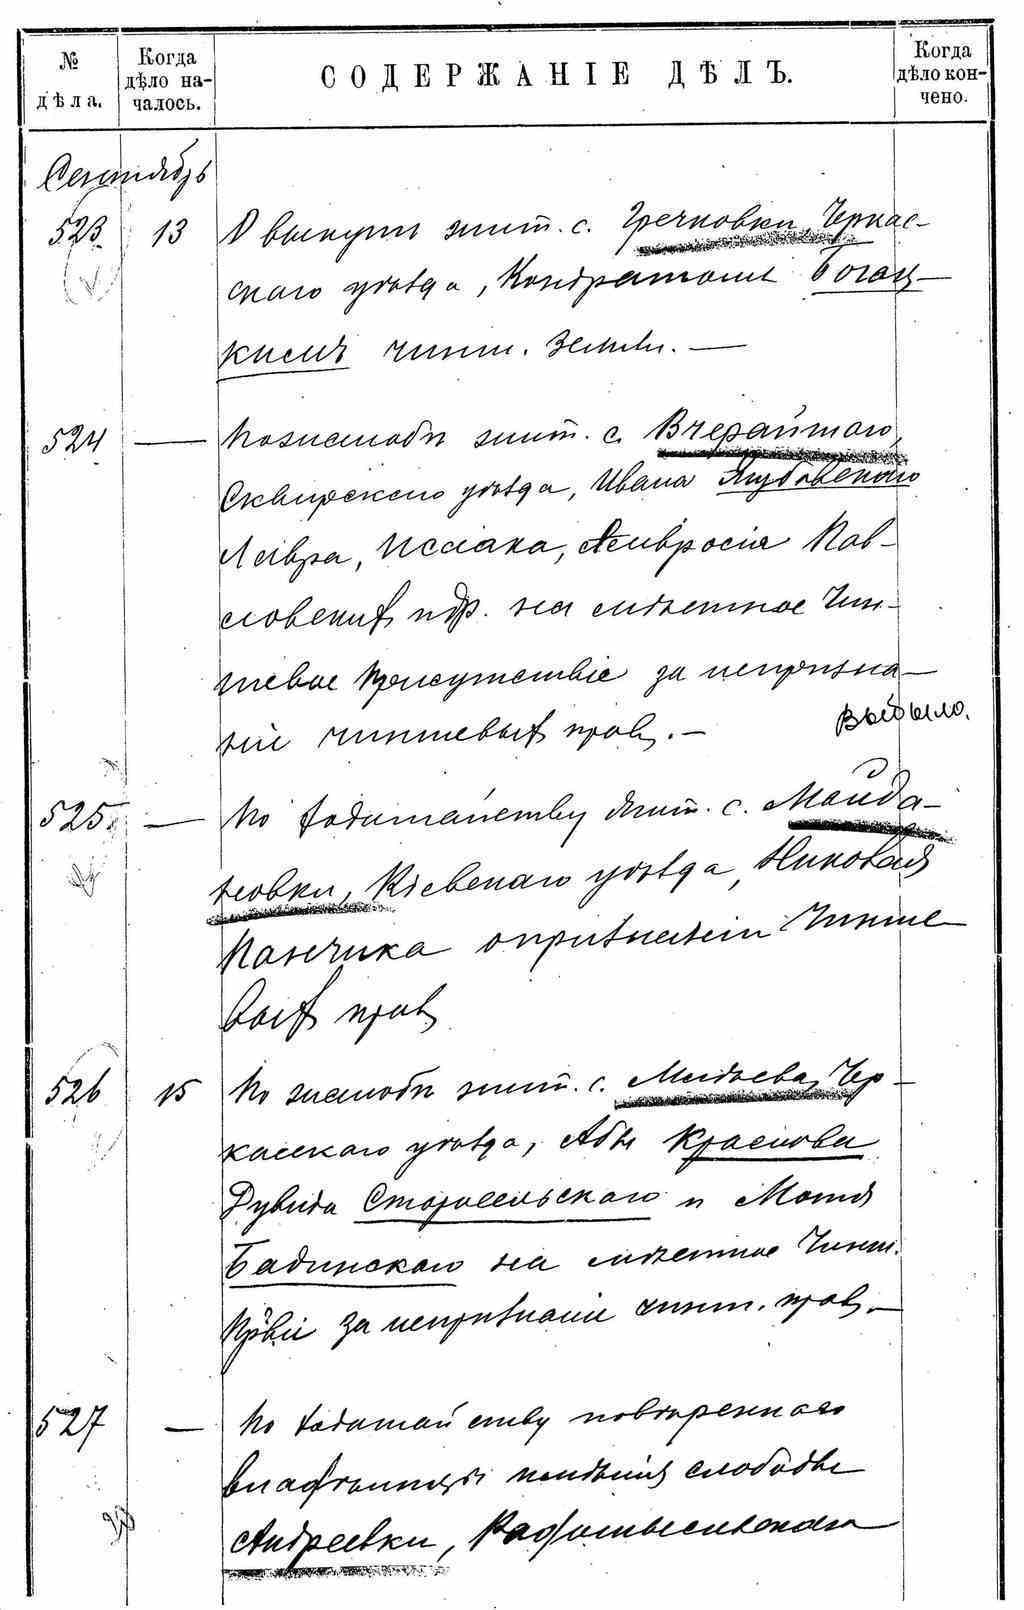 № дѣла.
Когда дѣло началось.
СОДЕРЖАНІЕ ДѢЛЪ.
Когда дѣло кончено.
Сентябрь
523 13 О выкупѣ жит. с. Гречковки, Черкас-
скаго уѣзда, Кондратомъ Богац-
кимъ чинш. земли. —
524 — По жалобѣ жит. с. Вчерайшаго,
Сквирскаго уѣзда, Ивана Якубовскаго
Лавра, Исаака, Амвросія Пав-
ловских и др. на мѣстное Чин-
шевое Присутствіе за непризна-
ніе чиншевых прав. —
Выбыло.
525 — По ходатайству жит. с. Майда-
новки, Кіевскаго уѣзда, Николая
Панчика о признаніи Чинше
вых прав
526 15 По жалобѣ жит. с. Черкасскаго уѣзда, Абы Краснова
Дувида Старосельскаго и Мотя
Бадинскаго на мѣстное Чинш.
Прві за непризнаніе чинш. прав. —
527 — По ходатайству повѣреннаго
владѣлицы имѣнія слободы
Андреевки, Радомысльскаго